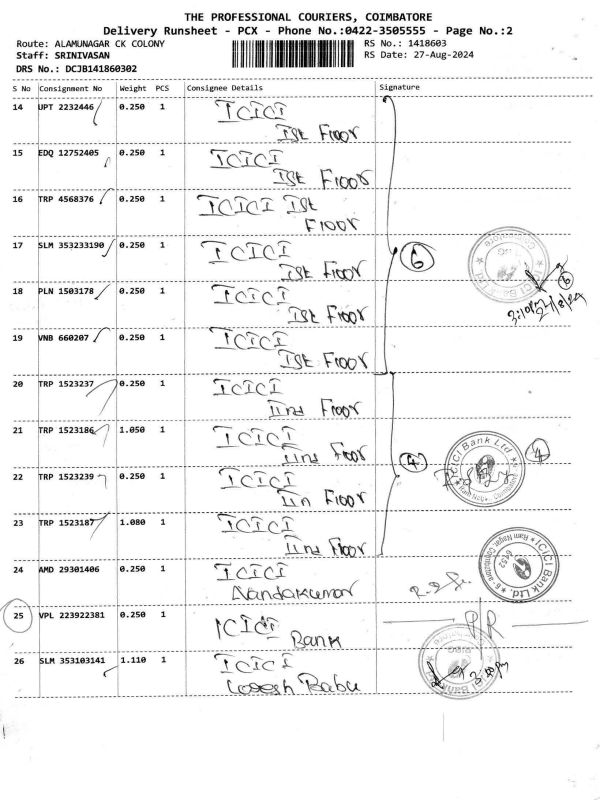 THE PROFESSIONAL COURIERS, COIMBATORE
Delivery Runsheet - PCX - Phone No.:0422-3505555 - Page No.:2
Route: ALAMUNAGAR CK COLONY RS No.: 1418603
Staff: SRINIVASAN RS Date: 27-Aug-2024
DRS No.: DCJB141860302
S No Consignment No Weight PCS Consignee Details Signature
14 UPT 2232446 0.250 1 ICICI
Ist Floor
15 EDQ 12752405 0.250 1 ICICI
Ist Floor
16 TRP 4568376 0.250 1 ICICI Ist
Floor
17 SLM 353233190 0.250 1 ICICI
Ist Floor
6
18 PLN 1503178 0.250 1 ICICI
Ist Floor
6
19 VNB 660207 0.250 1 ICICI
Ist Floor
20 TRP 1523237 0.250 1 ICICI
IInd Floor
21 TRP 1523186 1.050 1 ICICI
IInd Floor
4 ICICI Bank Ltd 4
22 TRP 1523239 0.250 1 ICICI
IIn Floor
23 TRP 1523187 1.080 1 ICICI
IInd Floor
24 AMD 29301406 0.250 1 ICICI
Nandakumar
ICICI Bank Ltd. Ram Nagar, Coimbatore 6152
25 VPL 223922381 0.250 1 ICICI
Bank
PR
26 SLM 353103141 1.110 1 ICICI
Logesh Babu